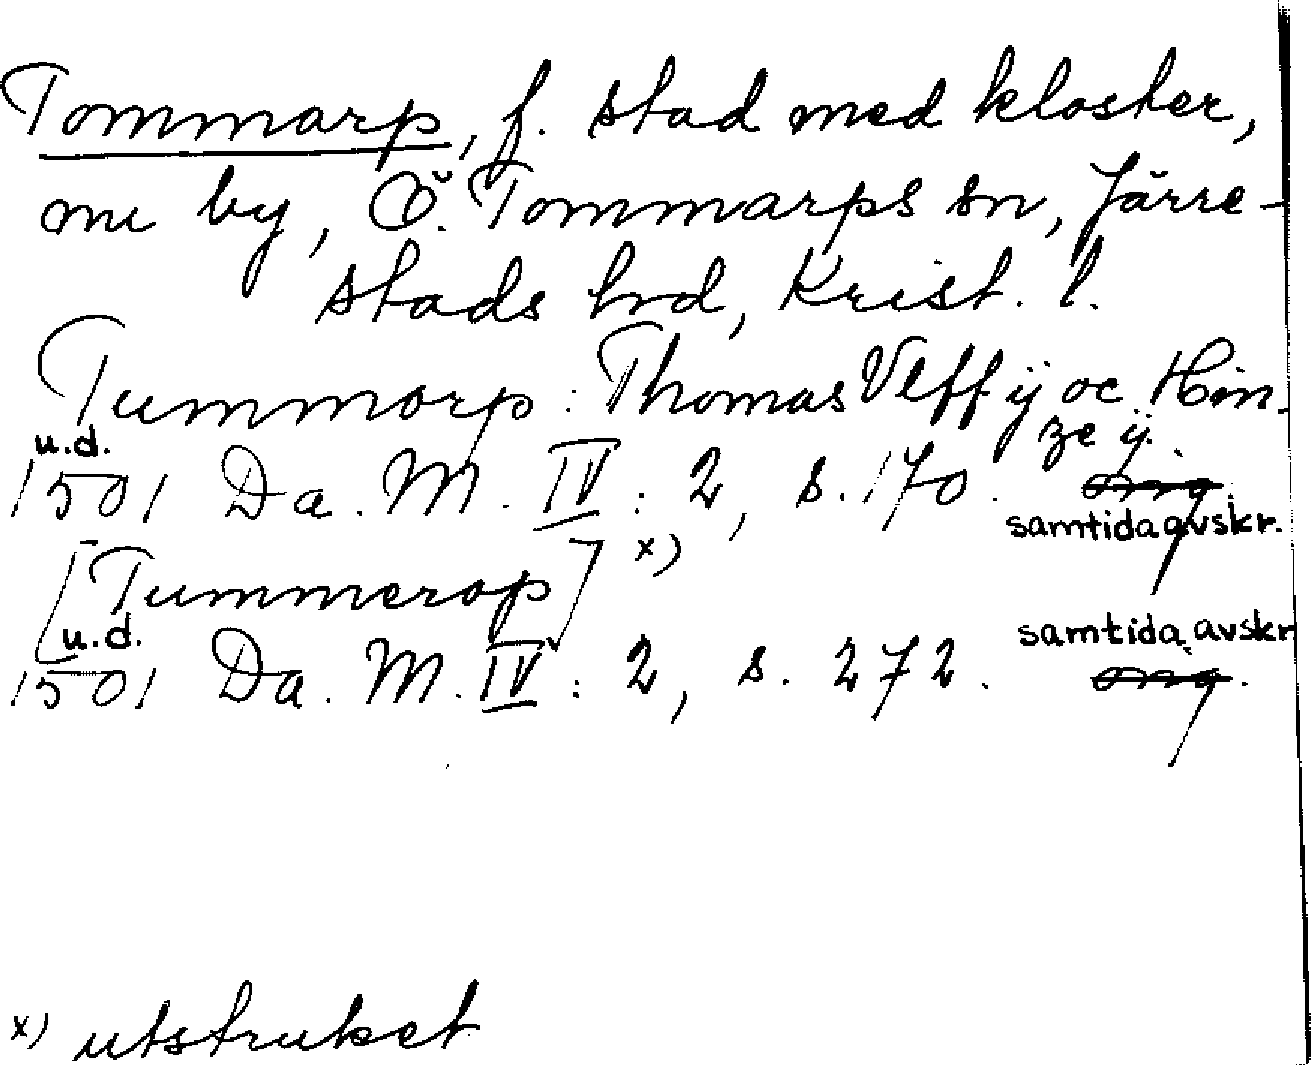 Tommarp, f. stad med kloster,
nu by, Ö. Tommarps sn, Järre-
stads hd, Krist. l.
Tummorp: Thomas Vlff ij oc Hin-
ze ij.
u.d.
1501 Da. M. IV: 2, s. 170. orig.
samtida avskr.
[Tummerop] x)
u.d.
samtida avskr
1501 Da. M. IV: 2, s. 272. orig.
x) utstruket